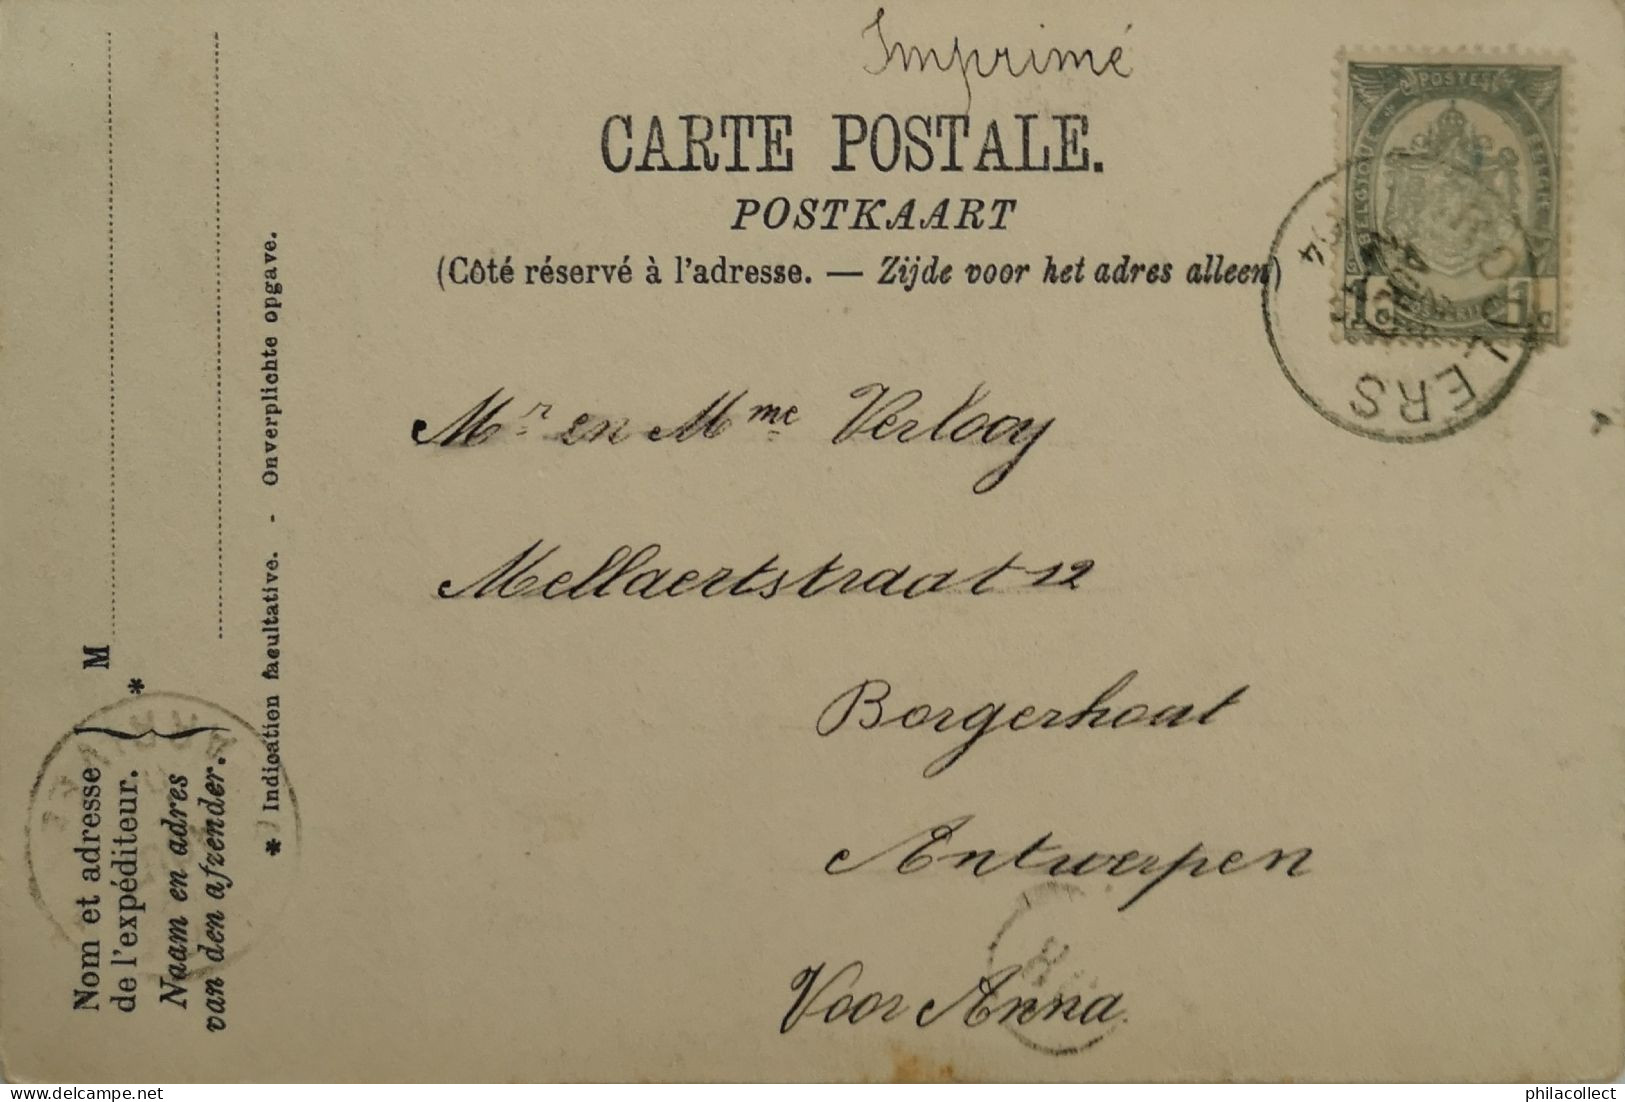 Imprimé
CARTE POSTALE.
POSTKAART
(Côté réservé à l'adresse. — Zijde voor het adres alleen)
POSTES
BELGIQUE
BELGIË
1c
1c
Mr en Mme Verlooy
Mellaertstraat 12
Borgerhout
Antwerpen
Voor Anna.
M
Nom et adresse
de l'expéditeur.
Naam en adres
van den afzender.
*
* Indication facultative. - Onverplichte opgave.
philacollect